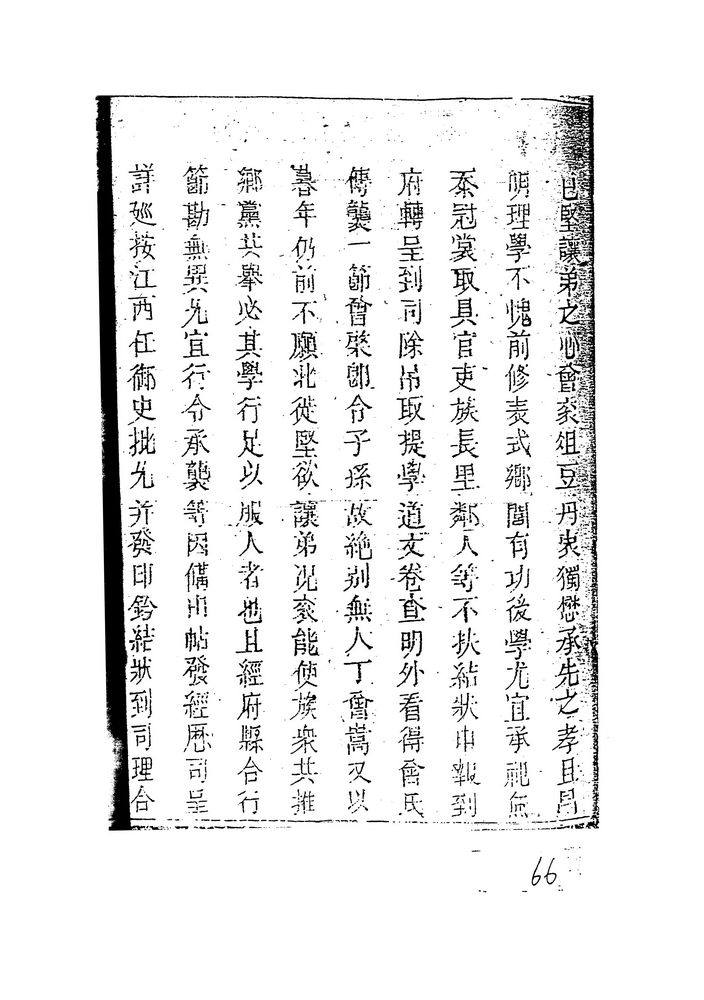 已堅讓弟之心會衮俎豆丹衷獨懋承先之孝且昌
明理學不愧前修表式鄉閭有功後學尤宜承祀無
忝冠裳取具官吏族長里鄰人等不扶結狀申報到
府轉呈到司除吊取提學道文卷查明外看得曾氏
傳襲一節曾棨卽今子孫故絶别無人丁曾嵩又以
暮年仍前不願北徙堅欲讓弟况衮能使族衆共推
鄉黨共舉必其學行足以服人者也且經府縣合行
節勘無異允宜行令承襲等因備由帖發經歷司呈
詳廵按江西任御史批允并發印鈐結狀到司理合
66